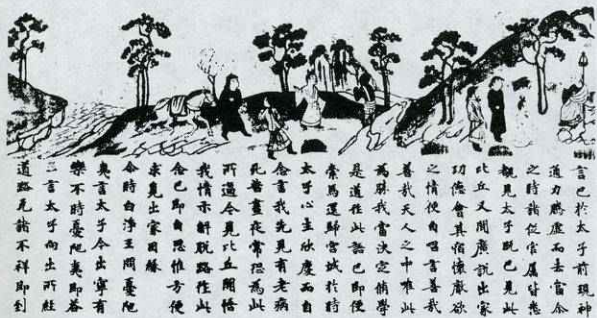 言已於太子前現神
通力騰虛而去當尒
之時諸從官屬皆悉
覩見太子既已見此
比丘又聞廣說出家
功德會其宿懷猒欲
之情便自唱言善哉
善哉天人之中唯此
為勝我當決定脩學
是道作此語已即便
索馬還歸宮城於時
太子心生欣慶而自
念言我先見有老病
死苦晝夜常恐為此
所逼今見比丘開悟
我情示解脫路作此
念已即自思惟方便
求覓出家因緣
尒時白淨王問憂陀
夷言太子今出寧有
樂不時憂陀夷即答
王言太子向出所經
道路无諸不祥即到